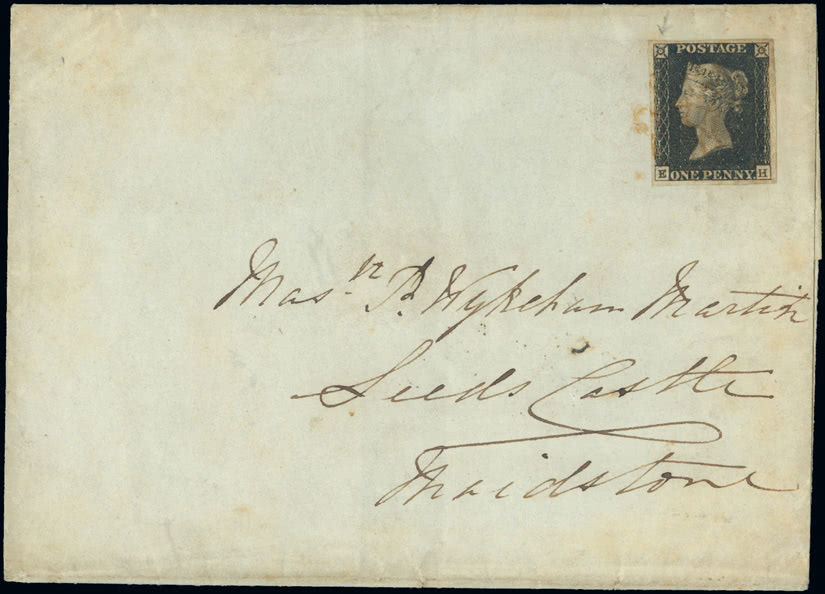 POSTAGE
E ONE PENNY H
Mas.r P. Wykeham Martin
Leeds Castle
Maidstone